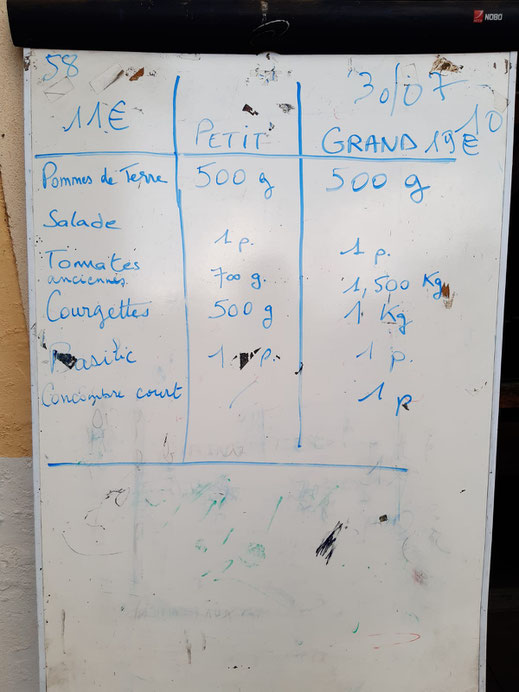 NOBO
58
30/07
11€
10
PETIT
GRAND 19€
Pommes de Terre 500 g 500 g
Salade 1 p. 1 p.
Tomates anciennes 700 g. 1,500 Kg
Courgettes 500 g 1 Kg
Basilic 1 p. 1 p.
Concombre court / 1 p